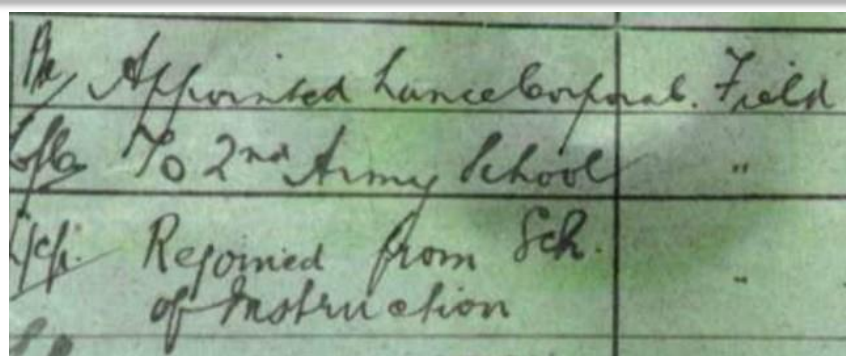 Pte Appointed Lance Corporal. Field
To 2nd Army School "
Rejoined from Sch. "
of Instruction